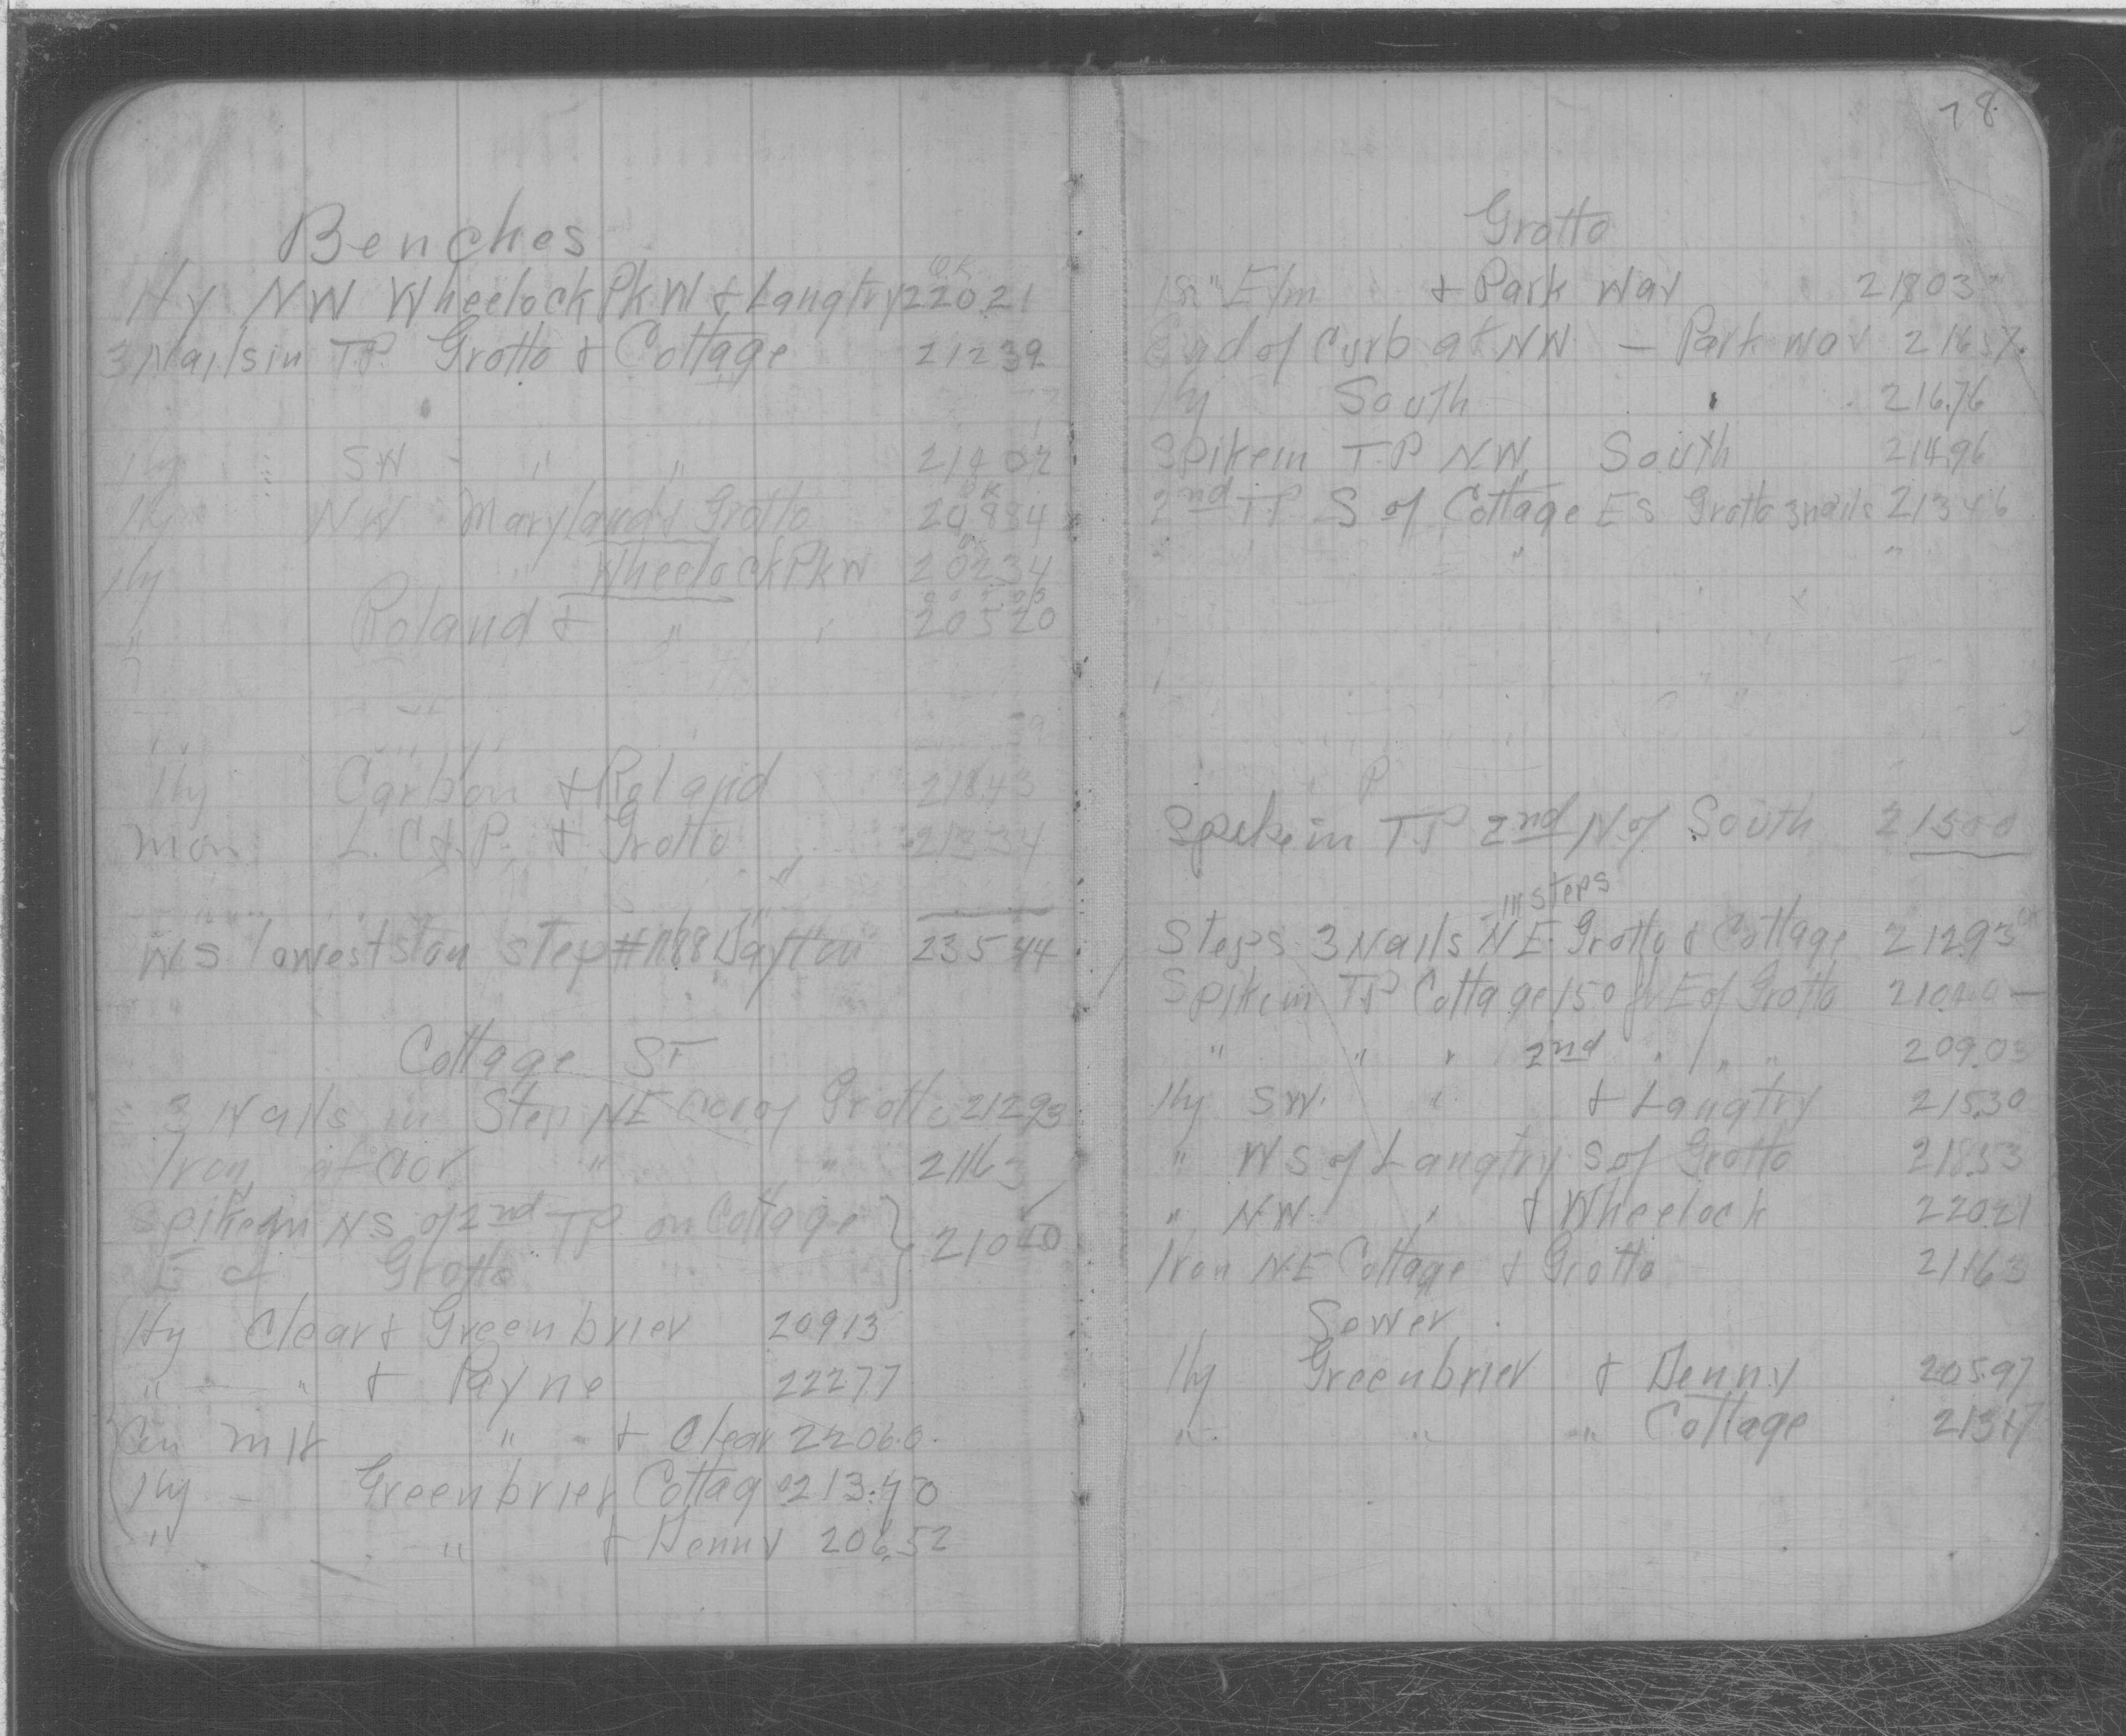 Benches
OK
Hy NW Wheelock PkW & Langtry 220.21
3 Nails in T.P. Grotto & Cottage 212 39
Hy SW " " 214 04
OK
Hy NW Maryland & Grotto 20 884
Hy " Wheelock PkW 20234
" Roland & " 20520
Hy Carbon & Roland 218.43
Mon L. C & P. & Grotto 213 34
WS lowest step #1188 Dayton 235 44
Cottage ST
3 Nails in Step NE Cor of Grotto 21293
Iron at Cor " " 21163
Spike in N.S. of 2nd TP. on Cottage
E of Grotto 210
Hy Clear & Greenbrier 20913
" " & Payne 22277
" & Clear 22060.
Hy - Greenbrier Cottage 213.40
" " & Denny 206.52
78
Grotto
Elm & Park Way 21803
End of Curb at NW - Park way 21657
Hy South 216.76
Spike in T.P NW. South 214.96
2nd T.P S of Cottage ES Grotto 3 nails 21346
Spike in T.P 2nd N of South 21500
in steps
Steps 3 Nails NE. Grotto & Cottage 212.93 OK
Spike in TP Cottage 150 ft E of Grotto
" " " 2nd " " " 209.03
Hy SW. " & Langtry 215.30
" WS of Langtry S of Grotto 218.53
" NW. " & Wheelock 220.21
Iron NE Cottage & Grotto 21163
Sewer
Hy Greenbrier & Denny 205.97
" " " Cottage 213.17